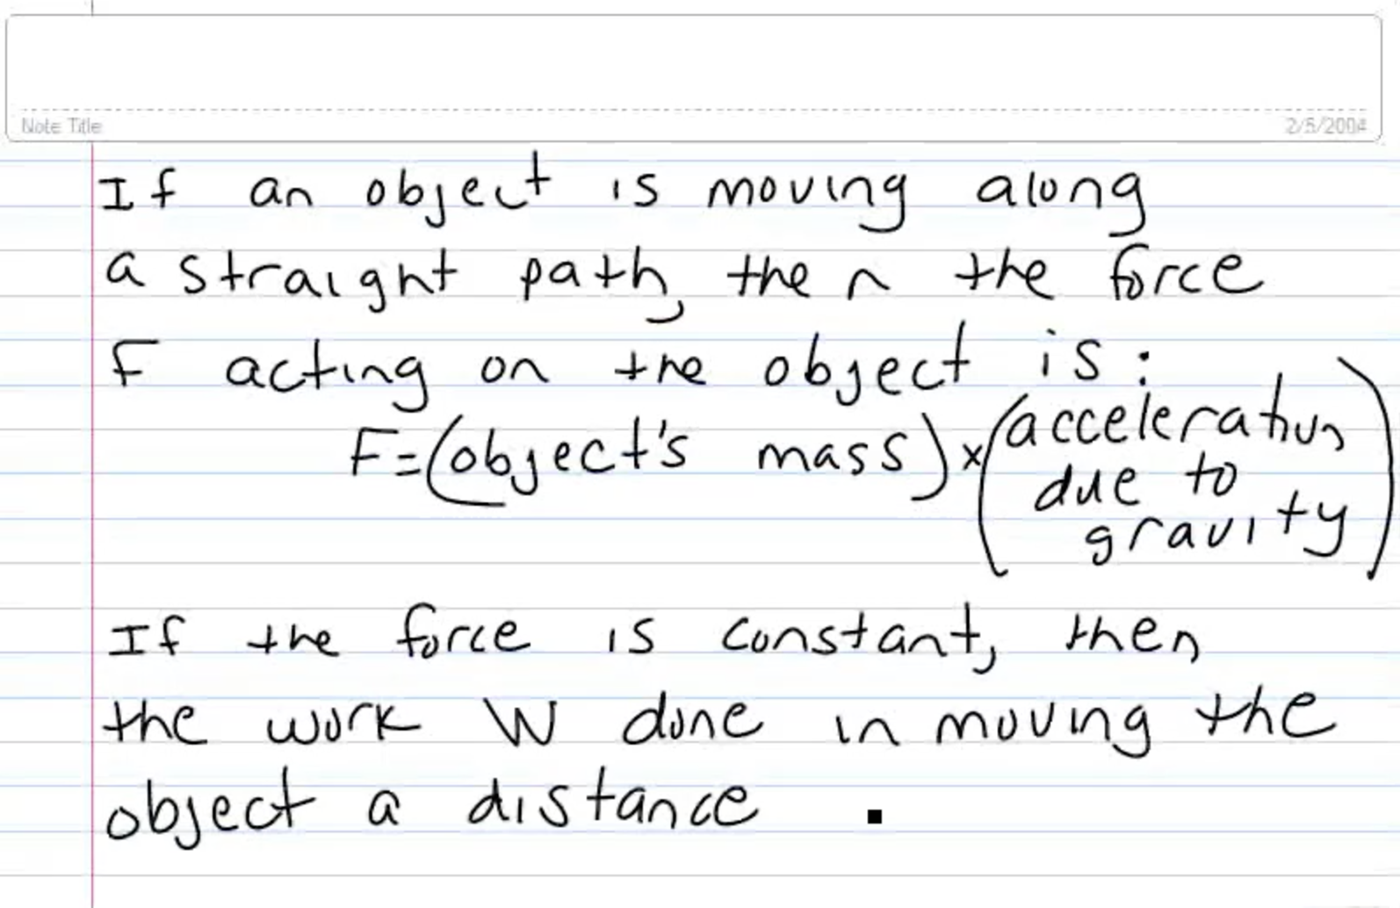 Note Title
2/5/2004
If an object is moving along
a straight path, then the force
F acting on the object is:
F=(object's mass)×(acceleration
due to
gravity)
If the force is constant, then
the work W done in moving the
object a distance